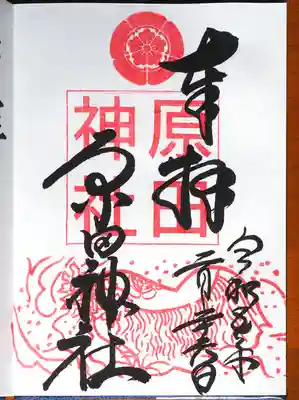 奉拝
原田
神社
原田神社
令和五年
二月